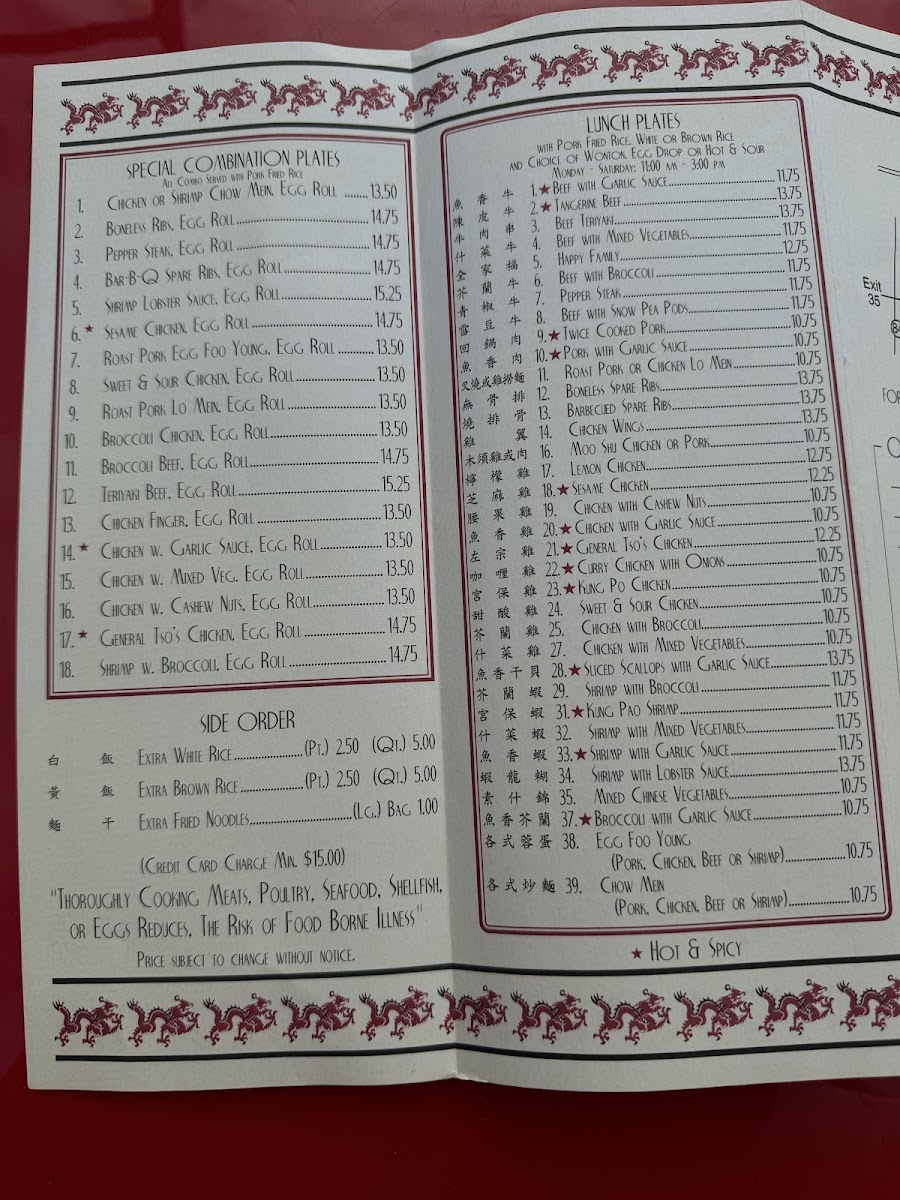 SPECIAL COMBINATION PLATES
ALL COMBO SERVED WITH PORK FRIED RICE
1. CHICKEN OR SHRIMP CHOW MEIN, EGG ROLL ......13.50
2. BONELESS RIBS, EGG ROLL......14.75
3. PEPPER STEAK, EGG ROLL......14.75
4. BAR-B-Q SPARE RIBS, EGG ROLL......14.75
5. SHRIMP LOBSTER SAUCE, EGG ROLL......15.25
6.★ SESAME CHICKEN, EGG ROLL......14.75
7. ROAST PORK EGG FOO YOUNG, EGG ROLL......13.50
8. SWEET & SOUR CHICKEN, EGG ROLL......13.50
9. ROAST PORK LO MEIN, EGG ROLL......13.50
10. BROCCOLI CHICKEN, EGG ROLL......13.50
11. BROCCOLI BEEF, EGG ROLL......14.75
12. TERIYAKI BEEF, EGG ROLL......15.25
13. CHICKEN FINGER, EGG ROLL......13.50
14.★ CHICKEN W. GARLIC SAUCE, EGG ROLL......13.50
15. CHICKEN W. MIXED VEG, EGG ROLL......13.50
16. CHICKEN W. CASHEW NUTS, EGG ROLL......13.50
17.★ GENERAL TSO'S CHICKEN, EGG ROLL......14.75
18. SHRIMP W. BROCCOLI, EGG ROLL......14.75
SIDE ORDER
白飯 EXTRA WHITE RICE......(PT.) 2.50 (QT.) 5.00
黃飯 EXTRA BROWN RICE......(PT.) 2.50 (QT.) 5.00
麵干 EXTRA FRIED NOODLES......(LG.) BAG 1.00
(CREDIT CARD CHARGE MIN. $15.00)
"THOROUGHLY COOKING MEATS, POULTRY, SEAFOOD, SHELLFISH,
OR EGGS REDUCES, THE RISK OF FOOD BORNE ILLNESS"
PRICE SUBJECT TO CHANGE WITHOUT NOTICE.
LUNCH PLATES
WITH PORK FRIED RICE, WHITE OR BROWN RICE
AND CHOICE OF WONTON, EGG DROP OR HOT & SOUR
MONDAY - SATURDAY: 11:00 AM - 3:00 PM
魚香牛 1.★BEEF WITH GARLIC SAUCE......11.75
陳皮牛 2.★TANGERINE BEEF......13.75
牛肉串 3. BEEF TERIYAKI......13.75
什菜牛 4. BEEF WITH MIXED VEGETABLES......11.75
全家福 5. HAPPY FAMILY......12.75
芥蘭牛 6. BEEF WITH BROCCOLI......11.75
青椒牛 7. PEPPER STEAK......11.75
雪豆牛 8. BEEF WITH SNOW PEA PODS......11.75
回鍋肉 9.★TWICE COOKED PORK......10.75
魚香肉 10.★PORK WITH GARLIC SAUCE......10.75
叉燒或雞撈麵 11. ROAST PORK OR CHICKEN LO MEIN......10.75
無骨排 12. BONELESS SPARE RIBS......13.75
燒排骨 13. BARBECUED SPARE RIBS......13.75
雞翼 14. CHICKEN WINGS......13.75
木須雞或肉 16. MOO SHU CHICKEN OR PORK......10.75
檸檬雞 17. LEMON CHICKEN......12.75
芝麻雞 18.★SESAME CHICKEN......12.25
腰果雞 19. CHICKEN WITH CASHEW NUTS......10.75
魚香雞 20.★CHICKEN WITH GARLIC SAUCE......10.75
左宗雞 21.★GENERAL TSO'S CHICKEN......12.25
咖喱雞 22.★CURRY CHICKEN WITH ONIONS......10.75
宮保雞 23.★KUNG PO CHICKEN......10.75
甜酸雞 24. SWEET & SOUR CHICKEN......10.75
芥蘭雞 25. CHICKEN WITH BROCCOLI......10.75
什菜雞 27. CHICKEN WITH MIXED VEGETABLES......10.75
魚香干貝 28.★SLICED SCALLOPS WITH GARLIC SAUCE......13.75
芥蘭蝦 29. SHRIMP WITH BROCCOLI......11.75
宮保蝦 31.★KUNG PAO SHRIMP......11.75
什菜蝦 32. SHRIMP WITH MIXED VEGETABLES......11.75
魚香蝦 33.★SHRIMP WITH GARLIC SAUCE......11.75
蝦龍糊 34. SHRIMP WITH LOBSTER SAUCE......13.75
素什錦 35. MIXED CHINESE VEGETABLES......10.75
魚香芥蘭 37.★BROCCOLI WITH GARLIC SAUCE......10.75
各式蓉蛋 38. EGG FOO YOUNG
(PORK, CHICKEN, BEEF OR SHRIMP)......10.75
各式炒麵 39. CHOW MEIN
(PORK, CHICKEN, BEEF OR SHRIMP)......10.75
★ HOT & SPICY
Exit
35